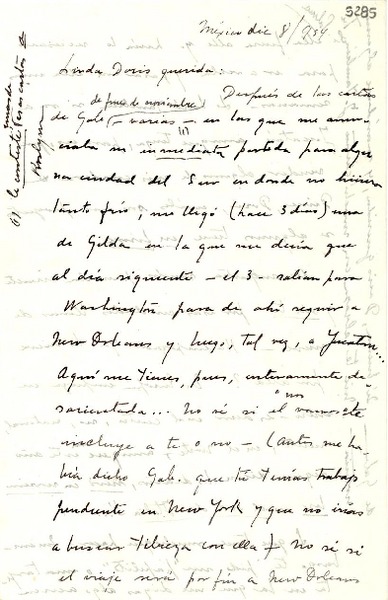 5285
México dic 8/954
Linda Doris querida:
de fines de noviembre
Después de las cartas
de Gabi – varias – en las que me anun-
(1)
ciaba su inmediata partida para algu-
na ciudad del Sur en donde no hiciera
tánto frío, me llegó (hace 3 días) una
de Gilda en la que me decía que
al día siguiente – el 3 – salían para
Washington para de ahí seguir a
New Orleans y luego, tal vez, a Yucatán...
Aquí me tienes, pues, enteramente de-
sorientada... No sé si el "nos vamos" te
incluye a tí o no – (antes me ha-
bía dicho Gabi. que tú tenías trabajo
pendiente en New York y que no irías
a buscar tibieza con ella) No sé si
el viaje será por fin a New Orleans
(1) le contesté esas cartas a
Brooklyn